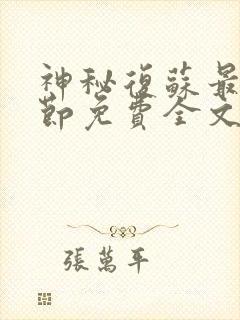 神秘復蘇最
節免費全文
張萬平